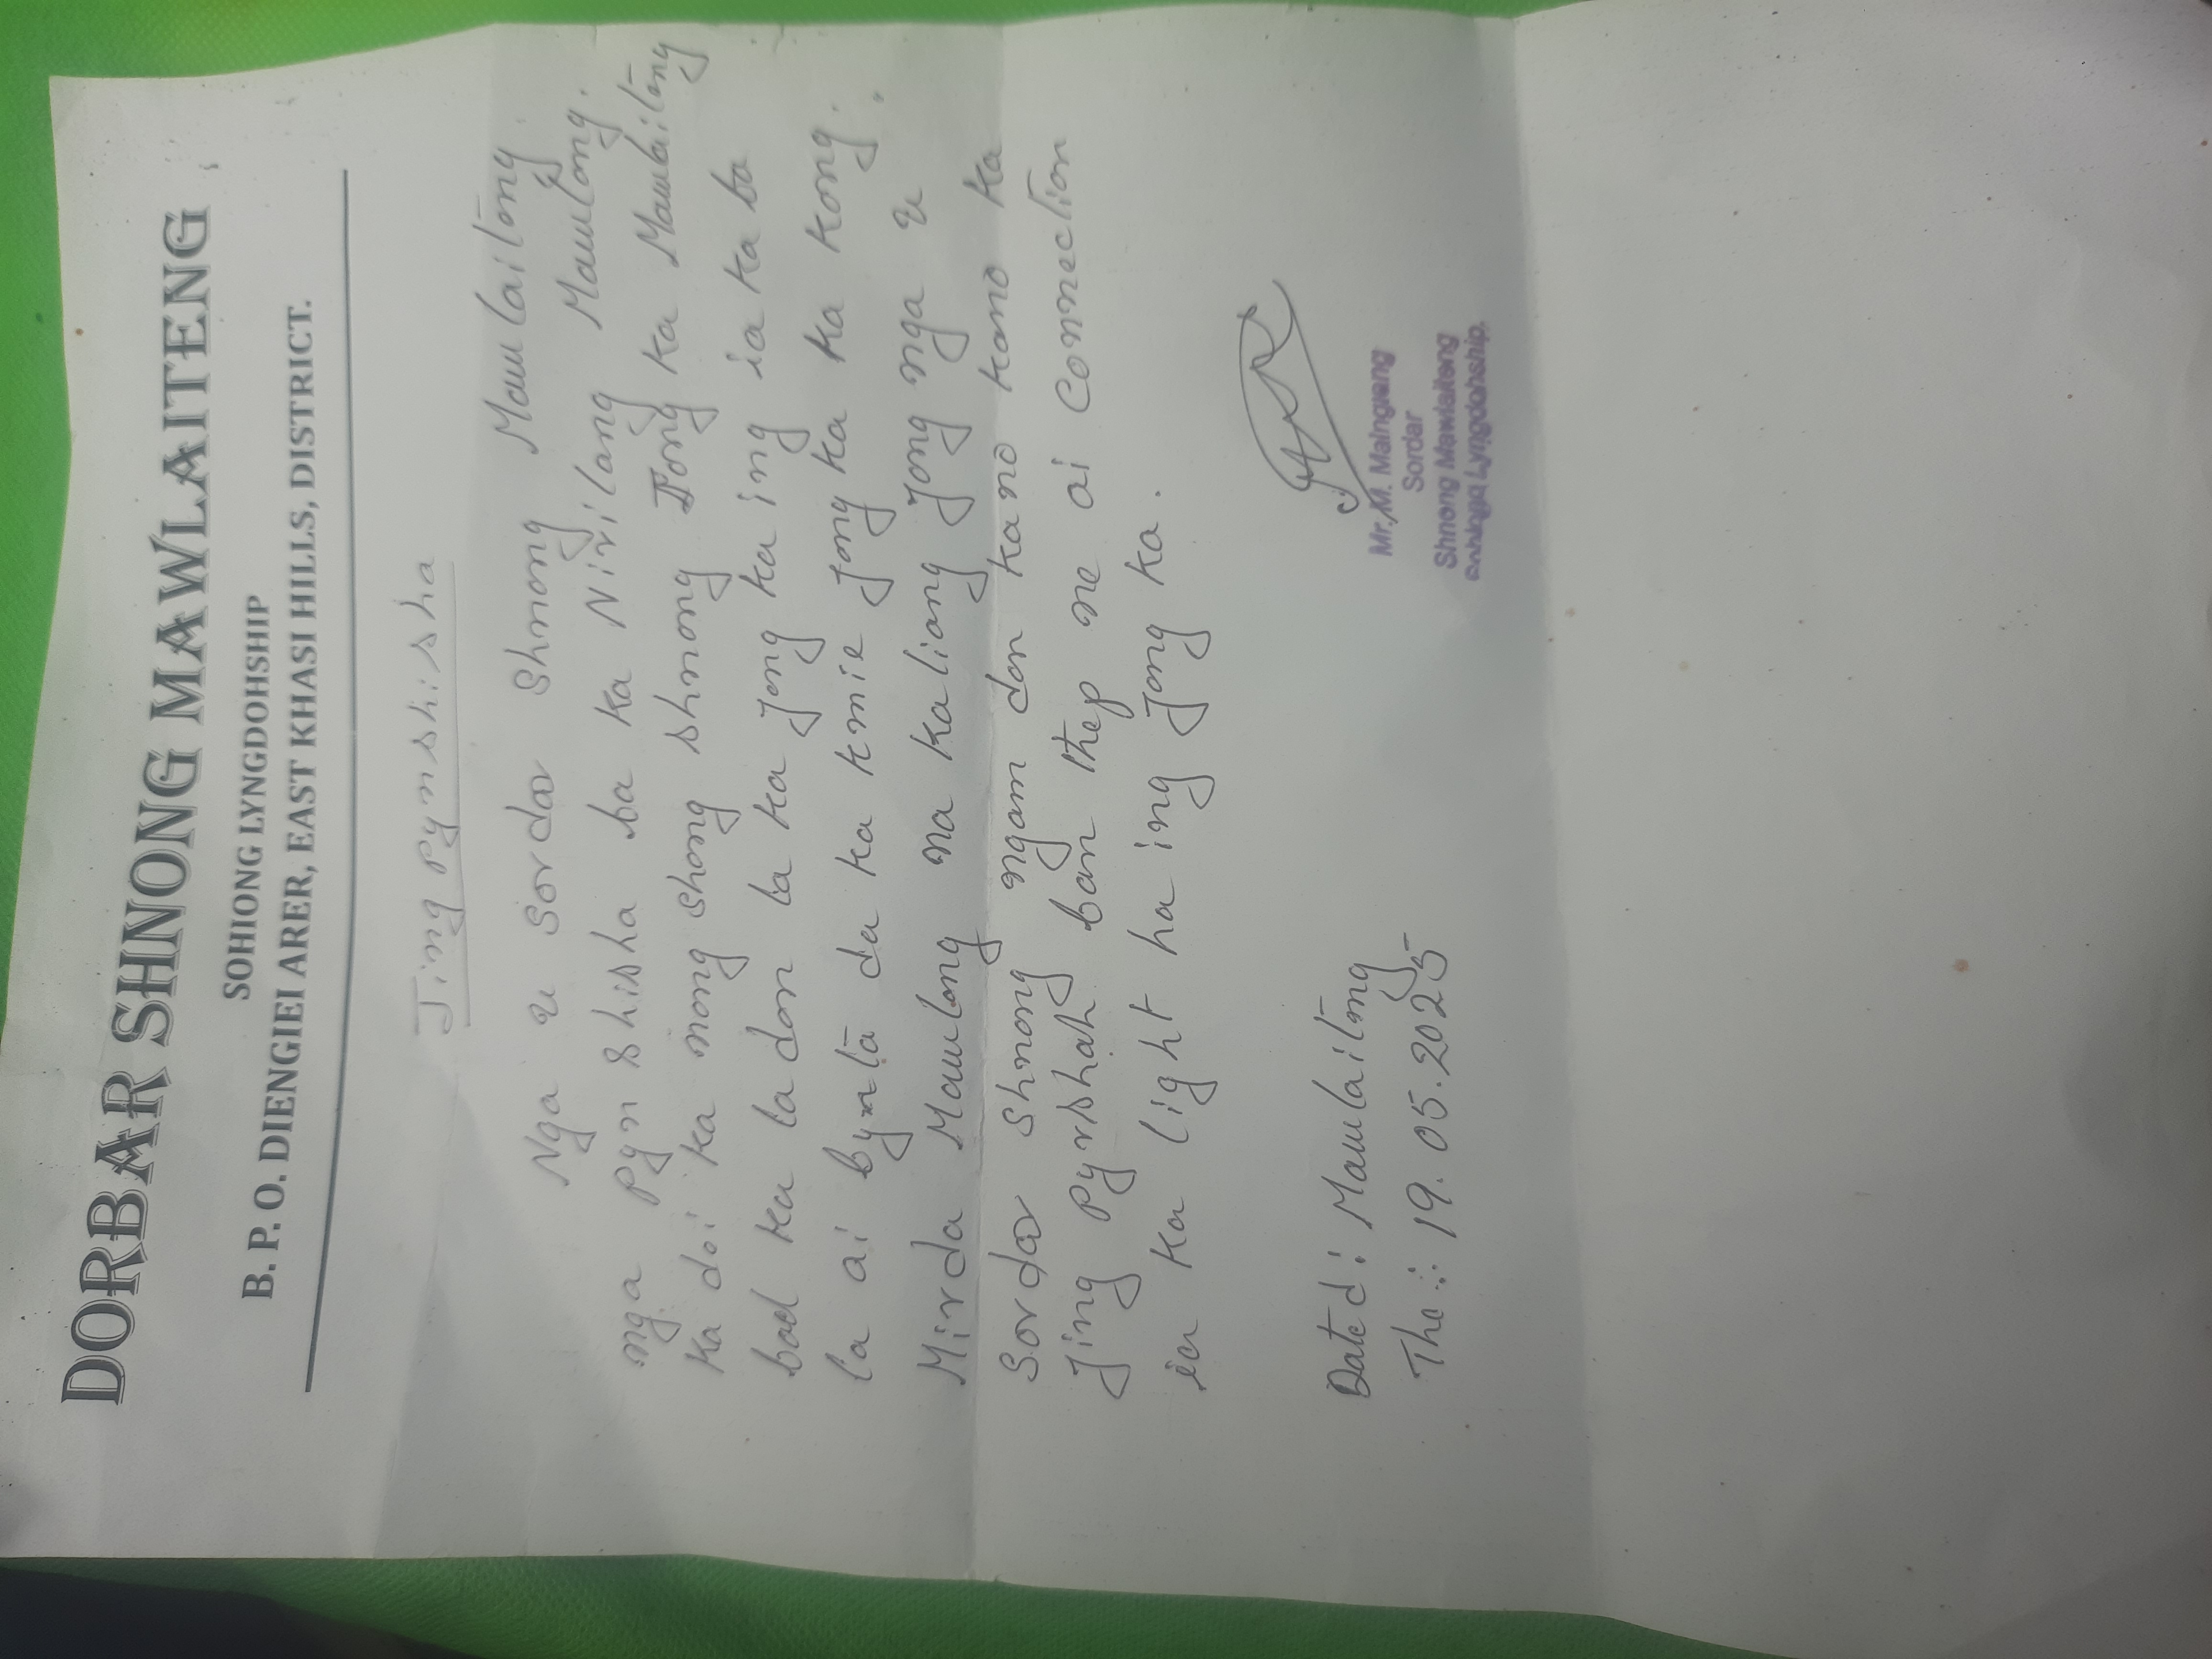 DORBAR SHNONG MAWLAITENG
SOHIONG LYNGDOHSHIP
B. P. O. DIENGIEI ARER, EAST KHASI HILLS, DISTRICT.
Jingpynshisha
Nga u Sordar Shnong Mawlaiteng
nga pyn shisha ba ka Nirilang Mawlong.
Ka doi ka nong shong shnong Jong ka Mawlaiteng
bad ka la don la ka jong ka ing ia ka ba
la ai bynta da ka kmie jong ka ka kong.
Mirda Mawlong na ka liang jong nga u
Sordar shnong ngam don kano kano ka
jing pyrshah ban thep ne ai connection
ia ka light ha ing jong ka.
Dated: Mawlaiteng
The: 19.05.2025
Mr. M. Maingwang
Sordar
Shnong Mawlaiteng
Sohiong Lyngdohship.